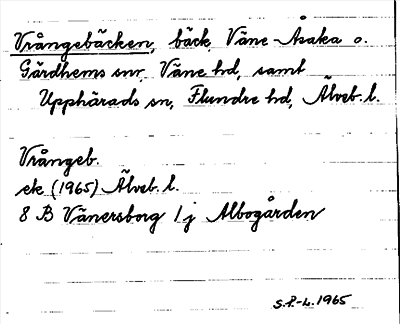 Vrångebäcken, bäck, Väne-Åsaka o.
Gärdhems snr, Väne hd, samt
Upphärads sn, Flundre hd, Älvsb. l.
Vrångeb.
ek (1965) Älvsb. l.
8 B Vänersborg 1 j Albogården
S.F-L. 1965